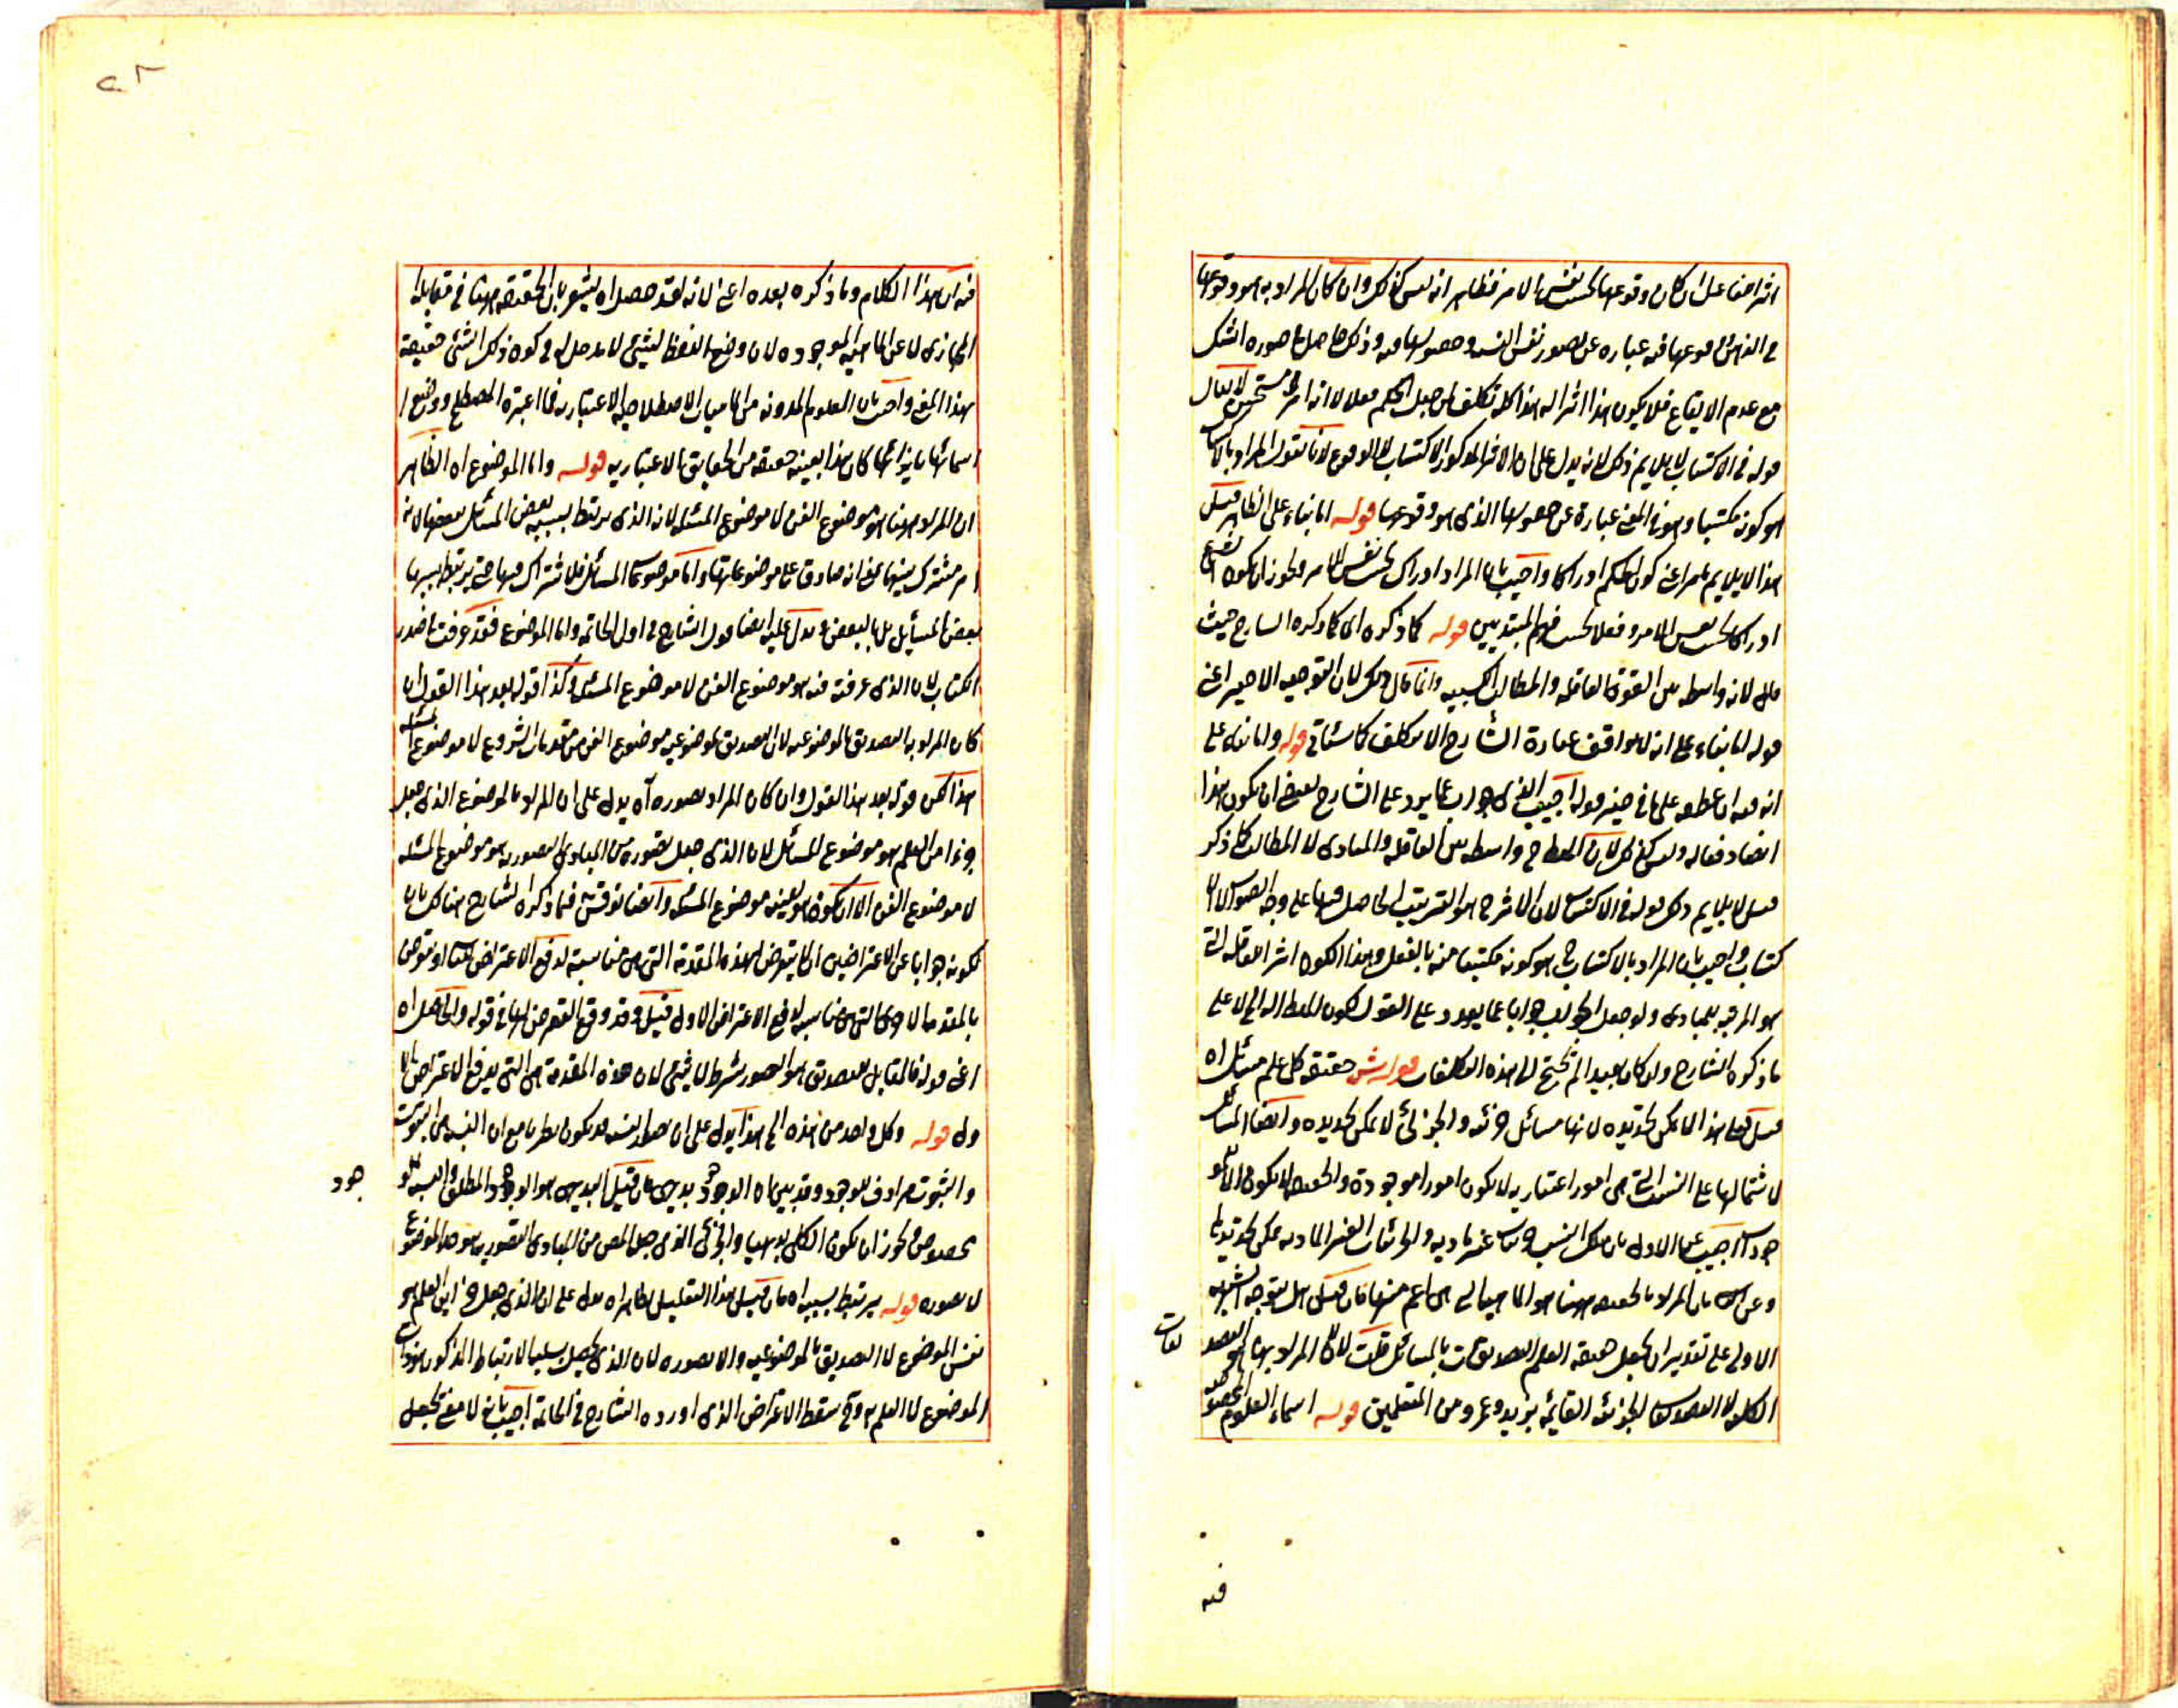 اثر ايضا على ان كان وقوعها بحسب نفس الامر فظاهر انه ليس كذلك وان كان المراد به هو وقوعها
في الذهن وقوعها فيه عباره عن تصور نفس النسبه وحصولها فيه وذلك حاصل في صوره الشك
مع عدم الايقاع فلا يكون هذا اثرا له هذا كله تكلف لمن جعل الحكم فعلا لا انه امر مستحسن لا يقال
قوله في الاكتساب لا يلايم ذلك لانه يدل على ان الاثر المذكور الاكتساب لا الوقوع لانا نقول المراد بالاكتساب
هو كونه مكتسبا وهو في المعنى عبارة عن حصولها الذي هو وقوعها قوله اما بناء على الظاهر قيل
هذا لا يلايم ما مر اعني كون الحكم ادراكا واجيب بان المراد ادراك بحسب نفس الامر ويجوز ان يكون الشيء
ادراكا بحسب نفس الامر وفعلا بحسب فهم المبتديين قوله كما ذكره اى كما ذكره الشارح حيث
قال لانه واسطه بين القوة العاقله والمطالب الكسبيه وانما قال ذلك لان التوجيه الاخير اعنى
قوله اما بناء على انه لا يوافق عبارة الشارح الا بتكلف كما سيأتي قوله واما بناء على
انه فيه ان عطفه على ما في حيز قوله اجيب الذى هو جواب عما يرد على الشارح يقتضى ان يكون هذا
ايضا دفعا له وليس كذلك لان المصطلح واسطه بين العاقله والمبادى لا المطالب كما ذكر
قيل لا يلايم ذلك قوله في الاكتساب لان الاثر ح هو الترتيب الحاصل فيها على وجه الصواب لا الا
كتساب واجيب بان المراد بالاكتساب ح هو كونه مكتسبا منه بالفعل وهذا الكون اثر العاقله التي
هو المرتبه للمبادى ولو جعل الجواب جوابا عما يورد على القول بكون المنطق اله الخ لا على
ما ذكره الشارح وان كان بعيدا لم يحتج الى هذه التكلفات قوله ش حقيقة كل علم مسائل اه
قيل فعلى هذا لا يمكن تحديده لانها مسائل جزئيه والجزئى لا يمكن تحديده وايضا المسائل
لاشتمالها على النسب التى هى امور اعتباريه لا يكون امورا موجودة والحقيقه لا يكون الا مو
جوده اجيب عن الاول بان تلك النسب جزئيات غير ماديه والجزئيات الغير الماديه يمكن تحديدها
وعن الثانى بان المراد بالحقيقه ههنا هو الماهيه التي هى اعم منها فان قيل هل يتوجه الشبهه
الاولى على تقدير ان يجعل حقيقه العلم التصديقات بالمسائل قلت لا لان المراد بها هو التصد
يقات
الكليه لا التصديقات الجزئيه القائمه بزيد وعمرو من المتعلمين قوله اسماء العلوم المخصوصه
فيه
فيه ان هذا الكلام وما ذكره بعده اعنى لانه قد حصل اه يشعر بان الحقيقه ههنا في مقابله
المجازى لا عن الماهيه الموجوده لان وضع اللفظ لشيئ لا مدخل له في كون ذلك الشئ حقيقة
بهذا المعنى واجيب بان العلوم المدونه من الماهيات الاصطلاحيه الاعتباريه فما اعتبره المصطلح ووضع
اسمائها بازائها كان هذا بعينه حقيقه من الحقايق الاعتباريه قوله واما الموضوع اه الظاهر
ان المراد ههنا هو موضوع الفن لا موضوع المسئله لانه الذى يرتبط بسببه بعض المسائل ببعضها لانه
امر مشترك بينها بمعنى انه صادق على موضوعاتها واما موضوعات المسائل فلا اشتراك فيها حتى يرتبط بسببها
بعض المسايل بالبعض ويدل عليه ايضا قول الشارح في اول الخاتمه واما الموضوع فقد عرفت في صدر
الكتاب لان الذى عرفته فيه هو موضوع الفن لا موضوع المسئله وكذا قوله بعد هذا القول ان
كان المراد به التصديق بالموضوعيه لان التصديق بموضوعيه موضوع الفن من مقدمات الشروع لا موضوع المسئله
هذا لكن قوله بعد هذا القول وان كان المراد تصوره اه يدل على ان المراد بالموضوع الذى جعل
جزءا من العلم هو موضوع المسائل لان الذى جعل تصوره من المبادى التصوريه هو موضوع المسئله
لا موضوع الفن الا ان يكون هو بعينه موضوع المسئله وايضا نوقش فيما ذكره الشارح هناك بان
لكونه جوابا عن الاعتراضين اى لا يتعرض لهذه المقدمة التى هى مناسبة لدفع الاعتراض الثانى او تعرض
بالمقدمه الاولى التى هى مناسبه لدفع الاعتراض الاول قيل وقد وقع التعرض لها في قوله والحاصل اه
اعنى قوله فالمقابل للتصديق هو التصور بشرط لا شيئ لان هذه المقدمة هى التى يدفع الاعتراض الا
ول قوله وكل واحد من هذه الخ هذا يدل على ان تصور النسبه قد يكون نظريا مع ان النسبه هى الثبوت
والثبوت مرادف للوجود وقد بين ان الوجود بديهى فان قيل البديهى هو الوجود المطلق والنسبه هى الو
جود
بخصوص ويجوز ان يكون الكلى بديهيا والجزئى الذى جعل المص من المبادى التصوريه هو هذا الموضوع
لا تصوره قوله يرتبط بسببه اه فان قيل هذا التعليل ظاهره يدل على ان الذى جعل جزءا من العلم هو
نفس الموضوع لا التصديق بالموضوعيه ولا تصوره لان الذى يحصل بسببه الارتباط المذكور هو ذات
الموضوع لا العلم به وح سقط الاعتراض الذى اورده الشارح في الخاتمة اجيب بانه لا معنى لجعل